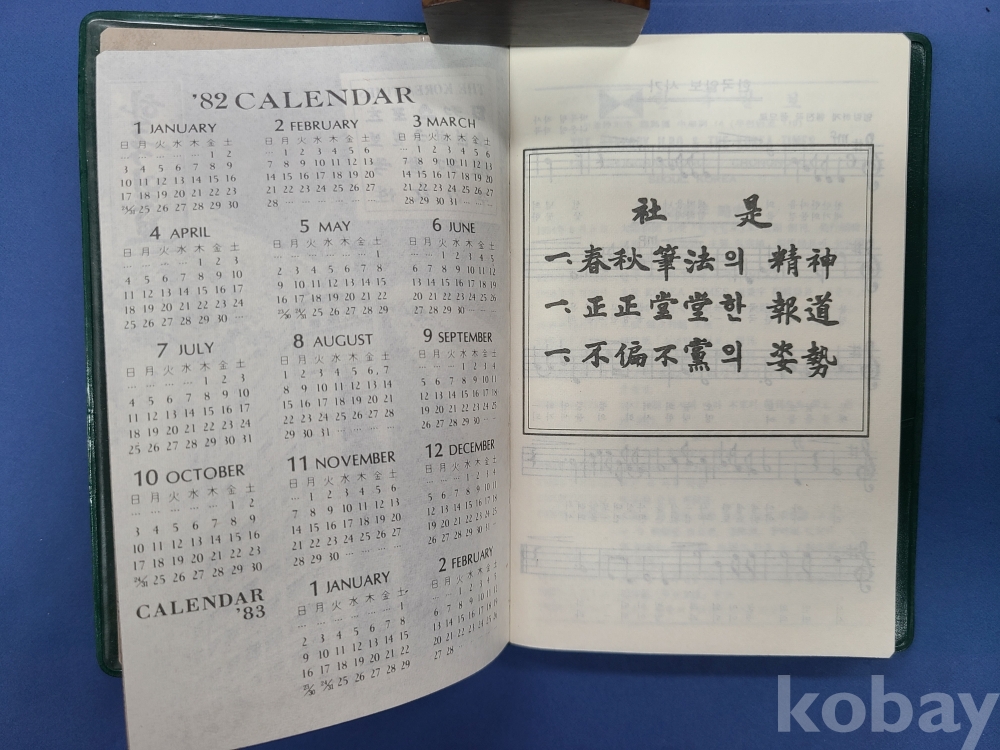 '82 CALENDAR
1 JANUARY
日 月 火 水 木 金 土
… … … … … 1 2
3 4 5 6 7 8 9
10 11 12 13 14 15 16
17 18 19 20 21 22 23
24/31 25 26 27 28 29 30
2 FEBRUARY
日 月 火 水 木 金 土
… 1 2 3 4 5 6
7 8 9 10 11 12 13
14 15 16 17 18 19 20
21 22 23 24 25 26 27
28 … … … … … …
3 MARCH
日 月 火 水 木 金 土
… 1 2 3 4 5 6
7 8 9 10 11 12 13
14 15 16 17 18 19 20
21 22 23 24 25 26 27
28 29 30 31 … … …
4 APRIL
日 月 火 水 木 金 土
… … … … 1 2 3
4 5 6 7 8 9 10
11 12 13 14 15 16 17
18 19 20 21 22 23 24
25 26 27 28 29 30 …
5 MAY
日 月 火 水 木 金 土
… … … … … … 1
2 3 4 5 6 7 8
9 10 11 12 13 14 15
16 17 18 19 20 21 22
23/30 24/31 25 26 27 28 29
6 JUNE
日 月 火 水 木 金 土
… … 1 2 3 4 5
6 7 8 9 10 11 12
13 14 15 16 17 18 19
20 21 22 23 24 25 26
27 28 29 30 … … …
7 JULY
日 月 火 水 木 金 土
… … … … 1 2 3
4 5 6 7 8 9 10
11 12 13 14 15 16 17
18 19 20 21 22 23 24
25 26 27 28 29 30 31
8 AUGUST
日 月 火 水 木 金 土
1 2 3 4 5 6 7
8 9 10 11 12 13 14
15 16 17 18 19 20 21
22 23 24 25 26 27 28
29 30 31 … … … …
9 SEPTEMBER
日 月 火 水 木 金 土
… … … 1 2 3 4
5 6 7 8 9 10 11
12 13 14 15 16 17 18
19 20 21 22 23 24 25
26 27 28 29 30 … …
10 OCTOBER
日 月 火 水 木 金 土
… … … … … 1 2
3 4 5 6 7 8 9
10 11 12 13 14 15 16
17 18 19 20 21 22 23
24/31 25 26 27 28 29 30
11 NOVEMBER
日 月 火 水 木 金 土
… 1 2 3 4 5 6
7 8 9 10 11 12 13
14 15 16 17 18 19 20
21 22 23 24 25 26 27
28 29 30 … … … …
12 DECEMBER
日 月 火 水 木 金 土
… … … 1 2 3 4
5 6 7 8 9 10 11
12 13 14 15 16 17 18
19 20 21 22 23 24 25
26 27 28 29 30 31 …
CALENDAR
'83
1 JANUARY
日 月 火 水 木 金 土
… … … … … … 1
2 3 4 5 6 7 8
9 10 11 12 13 14 15
16 17 18 19 20 21 22
23/30 24/31 25 26 27 28 29
2 FEBRUARY
日 月 火 水 木 金 土
… … 1 2 3 4 5
6 7 8 9 10 11 12
13 14 15 16 17 18 19
20 21 22 23 24 25 26
27 28 … … … … …
社 是
一. 春秋筆法의 精神
一. 正正堂堂한 報道
一. 不偏不黨의 姿勢
kobay